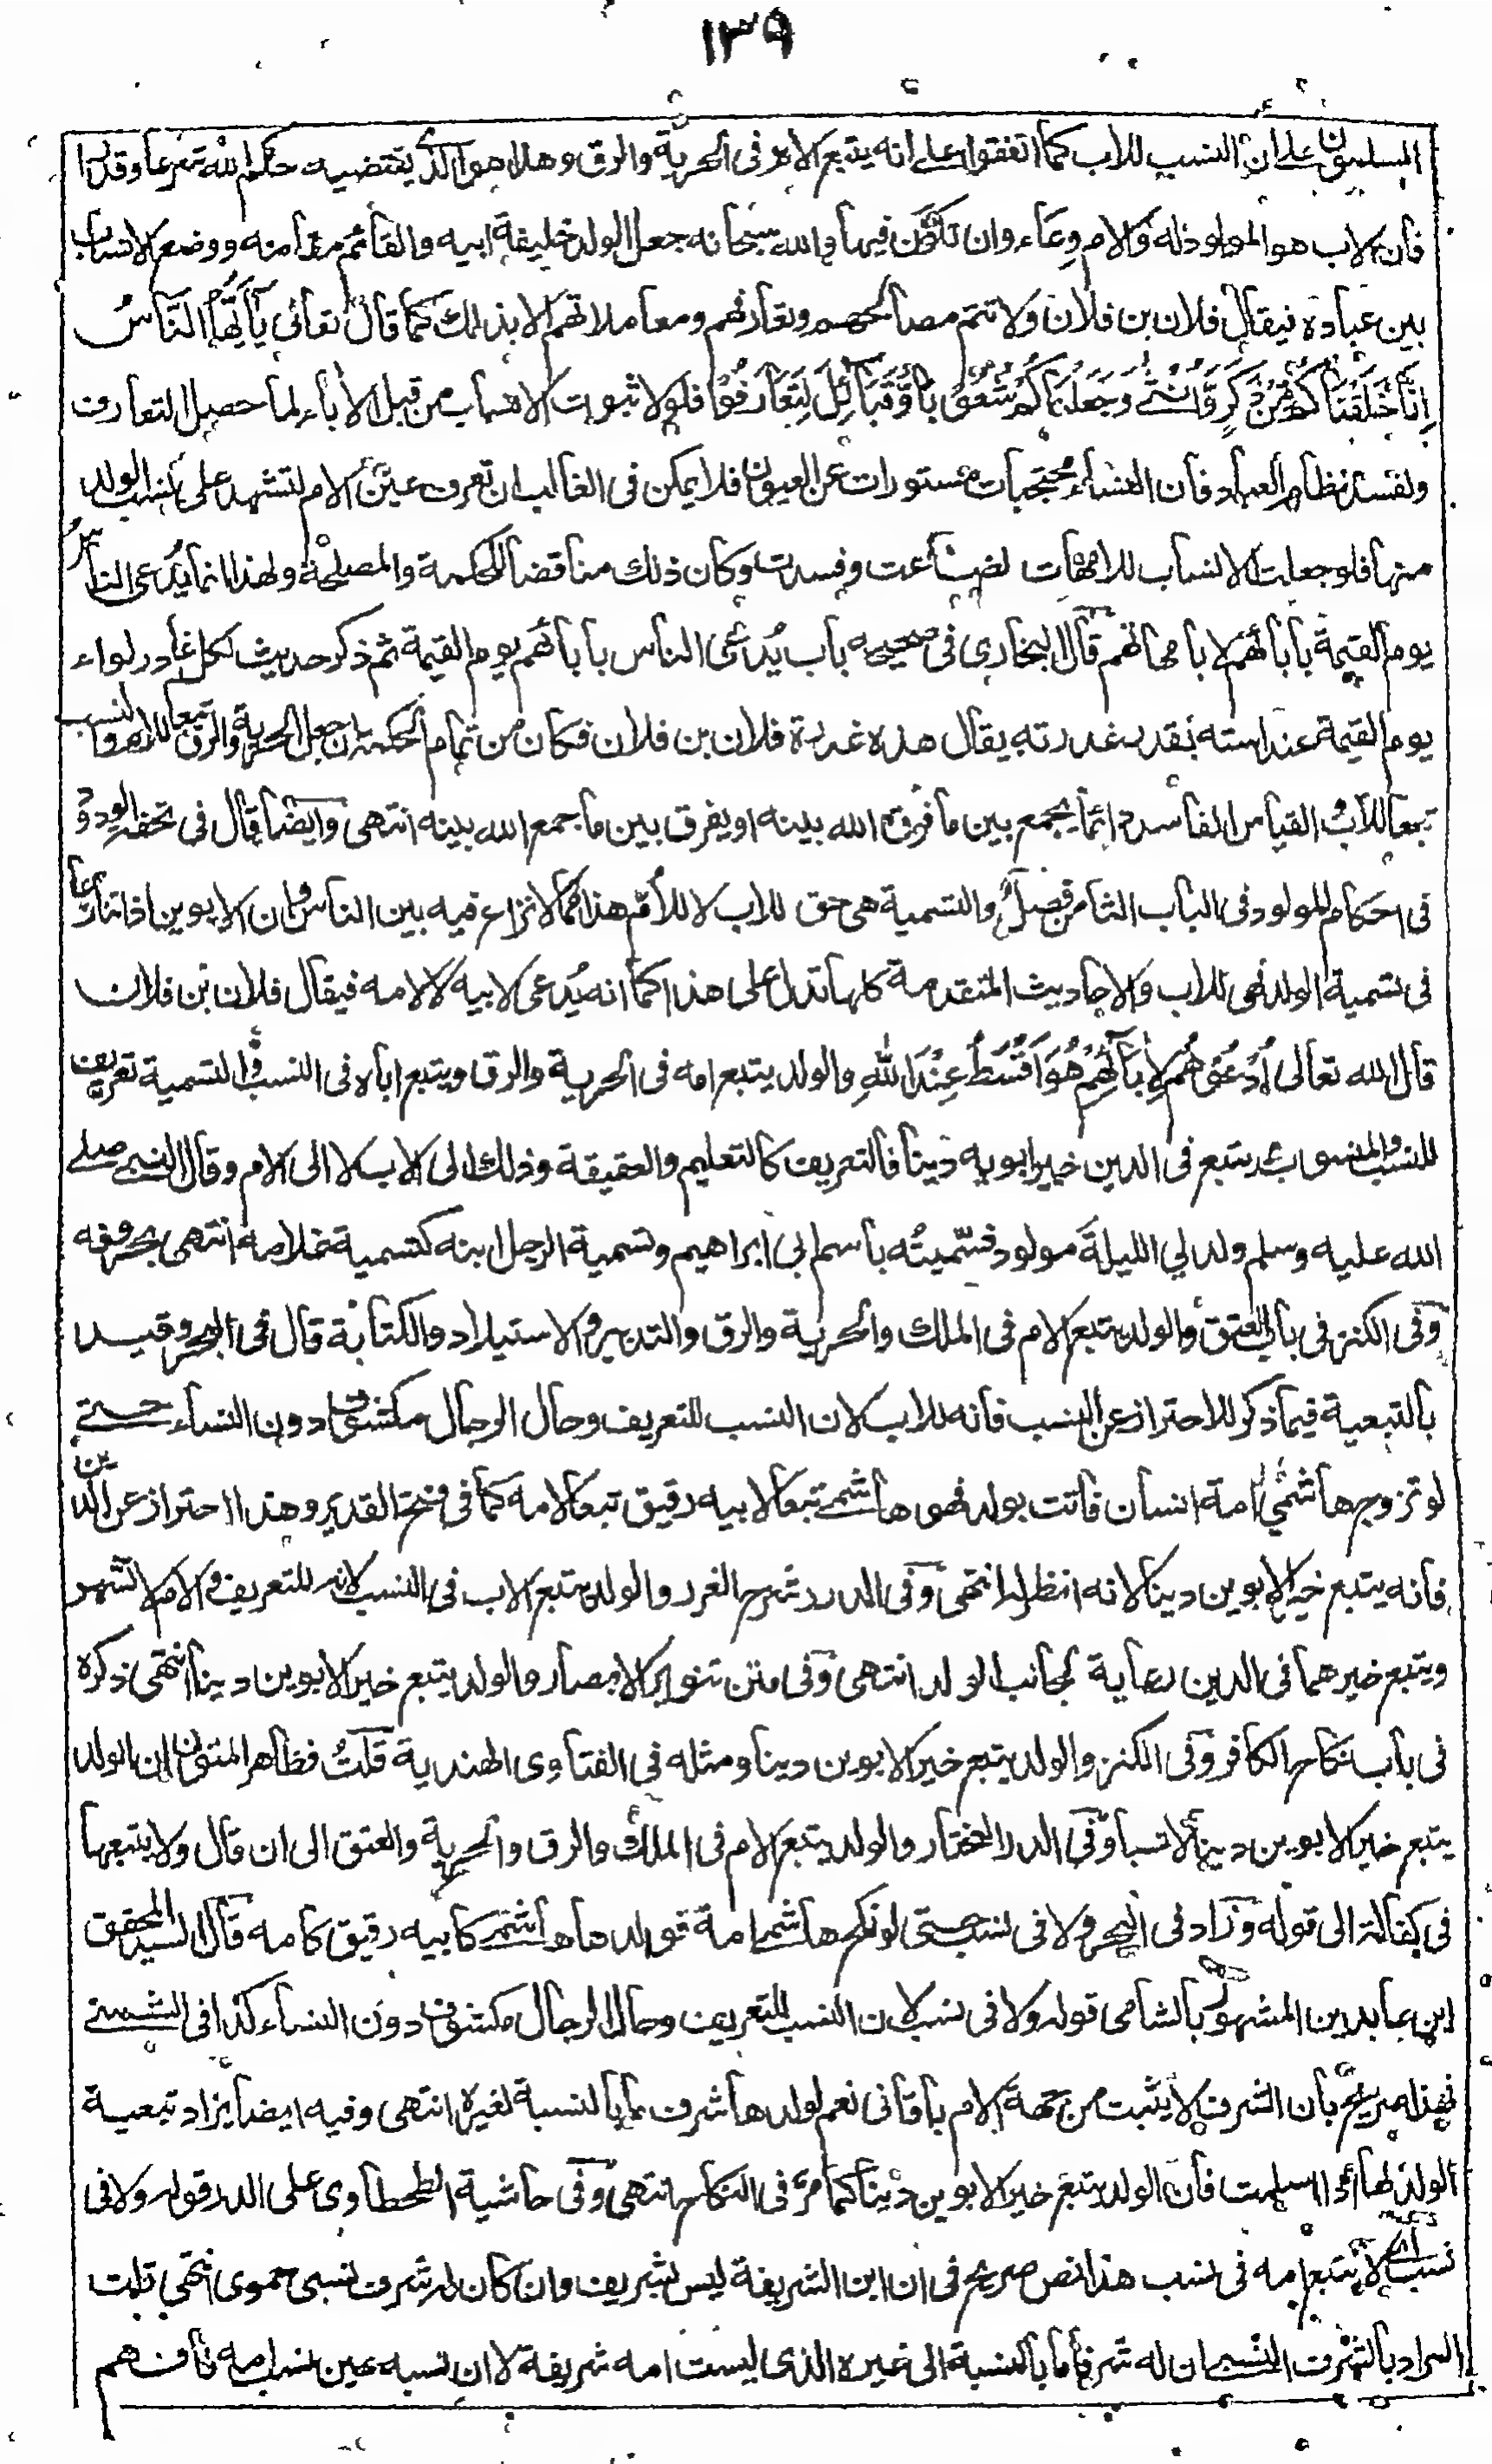 ١٣٩
المسلمون على ان النسب للاب كما اتفقوا على انه يتبع الام فى الحرية والرق وهذا هو الذى يقتضيه حكم الله شرعا وقدرا
فان الاب هو المولود له والام وعاء وان تكون فيها والله سبحانه جعل الولد خليفة ابيه والقائم مقامه ووضع الانساب
بين عباده فيقال فلان بن فلان ولا تتم مصالحهم وتعارفهم ومعاملاتهم الا بذلك كما قال تعالى يَآاَيُّهَا النَّاسُ
اِنَّا خَلَقْنَاكُمْ مِّنْ ذَكَرٍ وَّاُنْثٰى وَجَعَلْنَاكُمْ شُعُوْبًا وَّقَبَآئِلَ لِتَعَارَفُوْا فلولا ثبوت الانساب من قبل الأباء لما حصل التعارف
ولفسد نظام العباد فان النساء محتجبات مستورات عن العيون فلا يمكن فى الغالب ان تعرف عين الام لتشهد على نسب الولد
منها فلو جعلت الانساب للامهات لضاعت وفسدت وكان ذلك مناقضا للحكمة والمصلحة ولهذا انما يُدعى الناسُ
يوم القيمة بآبائهم لا بامهاتهم قال البخارى فى صحيحه باب يُدعى الناس بآبائهم يوم القيمة ثم ذكر حديث لكل غادر لواء
يوم القيمة عند استه بقدر غدرته يقال هذه غدرة فلان بن فلان فكان من تمام الحكمة ان جعل الحرية والرق تبعا للام والنسب
تبعا للاب والقياس الفاسد انما يجمع بين ما فرق الله بينه او يفرق بين ما جمع الله بينه انتهى وايضا قال فى تحفة الودود
فى احكام المولود فى الباب الثامن فصل والتسمية هى حق للاب لا للام هذا مما لا نزاع فيه بين الناس وان الابوين اذا تنازعا
فى تسمية الولد فهى للاب والاحاديث المتقدمة كلها تدل على هذا كما انه يُدعى لابيه لا لامه فيقال فلان بن فلان
قال الله تعالى اُدْعُوْهُمْ لِاٰبَآئِهِمْ هُوَ اَقْسَطُ عِنْدَ اللّٰهِ والولد يتبع امه فى الحرية والرق ويتبع اباه فى النسب والتسمية تعريف
للنسب والمنسوب ويتبع فى الدين خير ابويه دينا فالتعريف كالتعليم والعقيقة وذلك الى الاب لا الى الام وقال النبى صلى
الله عليه وسلم ولد لي الليلةَ مولود فسَمَّيتُه باسم ابى ابراهيم وتسمية الرجل ابنه كتسمية غلامه انتهى بحروفه
وفى الكنز فى باب العتق والولد يتبع الام فى الملك والحرية والرق والتدبير والاستيلاد والكتابة قال فى البحر وقيد
بالتبعية فيما ذكر للاحتراز عن النسب فانه للاب لان النسب للتعريف وحال الرجال مكشوف دون النساء حتى
لو تزوج هاشمي امة انسان فاتت بولد فهو هاشمى تبعا لابيه رقيق تبعا لامه كما فى فتح القدير وهذا احتراز عن الدين
فانه يتبع خير الابوين دينا لانه انظر له انتهى وفى الدرر شرح الغرر والولد يتبع الاب فى النسب لانه للتعريف والام لا تشهر
ويتبع خيرهما فى الدين رعاية لجانب الولد انتهى وفى متن تنوير الابصار والولد يتبع خير الابوين دينا انتهى ذكره
فى باب نكاح الكافر وفى الكنز والولد يتبع خير الابوين دينا ومثله فى الفتاوى الهندية قلتُ فظاهر المتون ان الولد
يتبع خير الابوين دينا لا نسبا وفى الدر المختار والولد يتبع الام فى الملك والرق والحرية والعتق الى ان قال ولا يتبعها
فى كفالة الى قوله وزاد فى البحر ولا فى نسب حتى لو نكح هاشمى امة فولدها هاشمى كابيه رقيق كامه قال السيد المحقق
ابن عابدين المشهور بالشامى قوله ولا فى نسب لان النسب للتعريف وحال الرجال مكشوف دون النساء كذا فى الشمنى
فهذا صريح بان الشرف لا يثبت من جهة الام باقانى نعم لولدها شرف ما بالنسبة لغيره انتهى وفيه ايضا يزاد تبعية
الولد لها اذا اسلمت فان الولد يتبع خير الابوين دينا كما مرّ فى النكاح انتهى وفى حاشية الطحطاوى على الدر قوله ولا فى
نسب اى لا يتبع امه فى نسب هذا نص صريح فى ان ابن الشريفة ليس بشريف وان كان له شرف نسبى حموى انتهى قلت
المراد بالشرف النسبى ان له شرفا ما بالنسبة الى غيره الذى ليست امه شريفة لا ان نسبه عين نسب امه فافهم